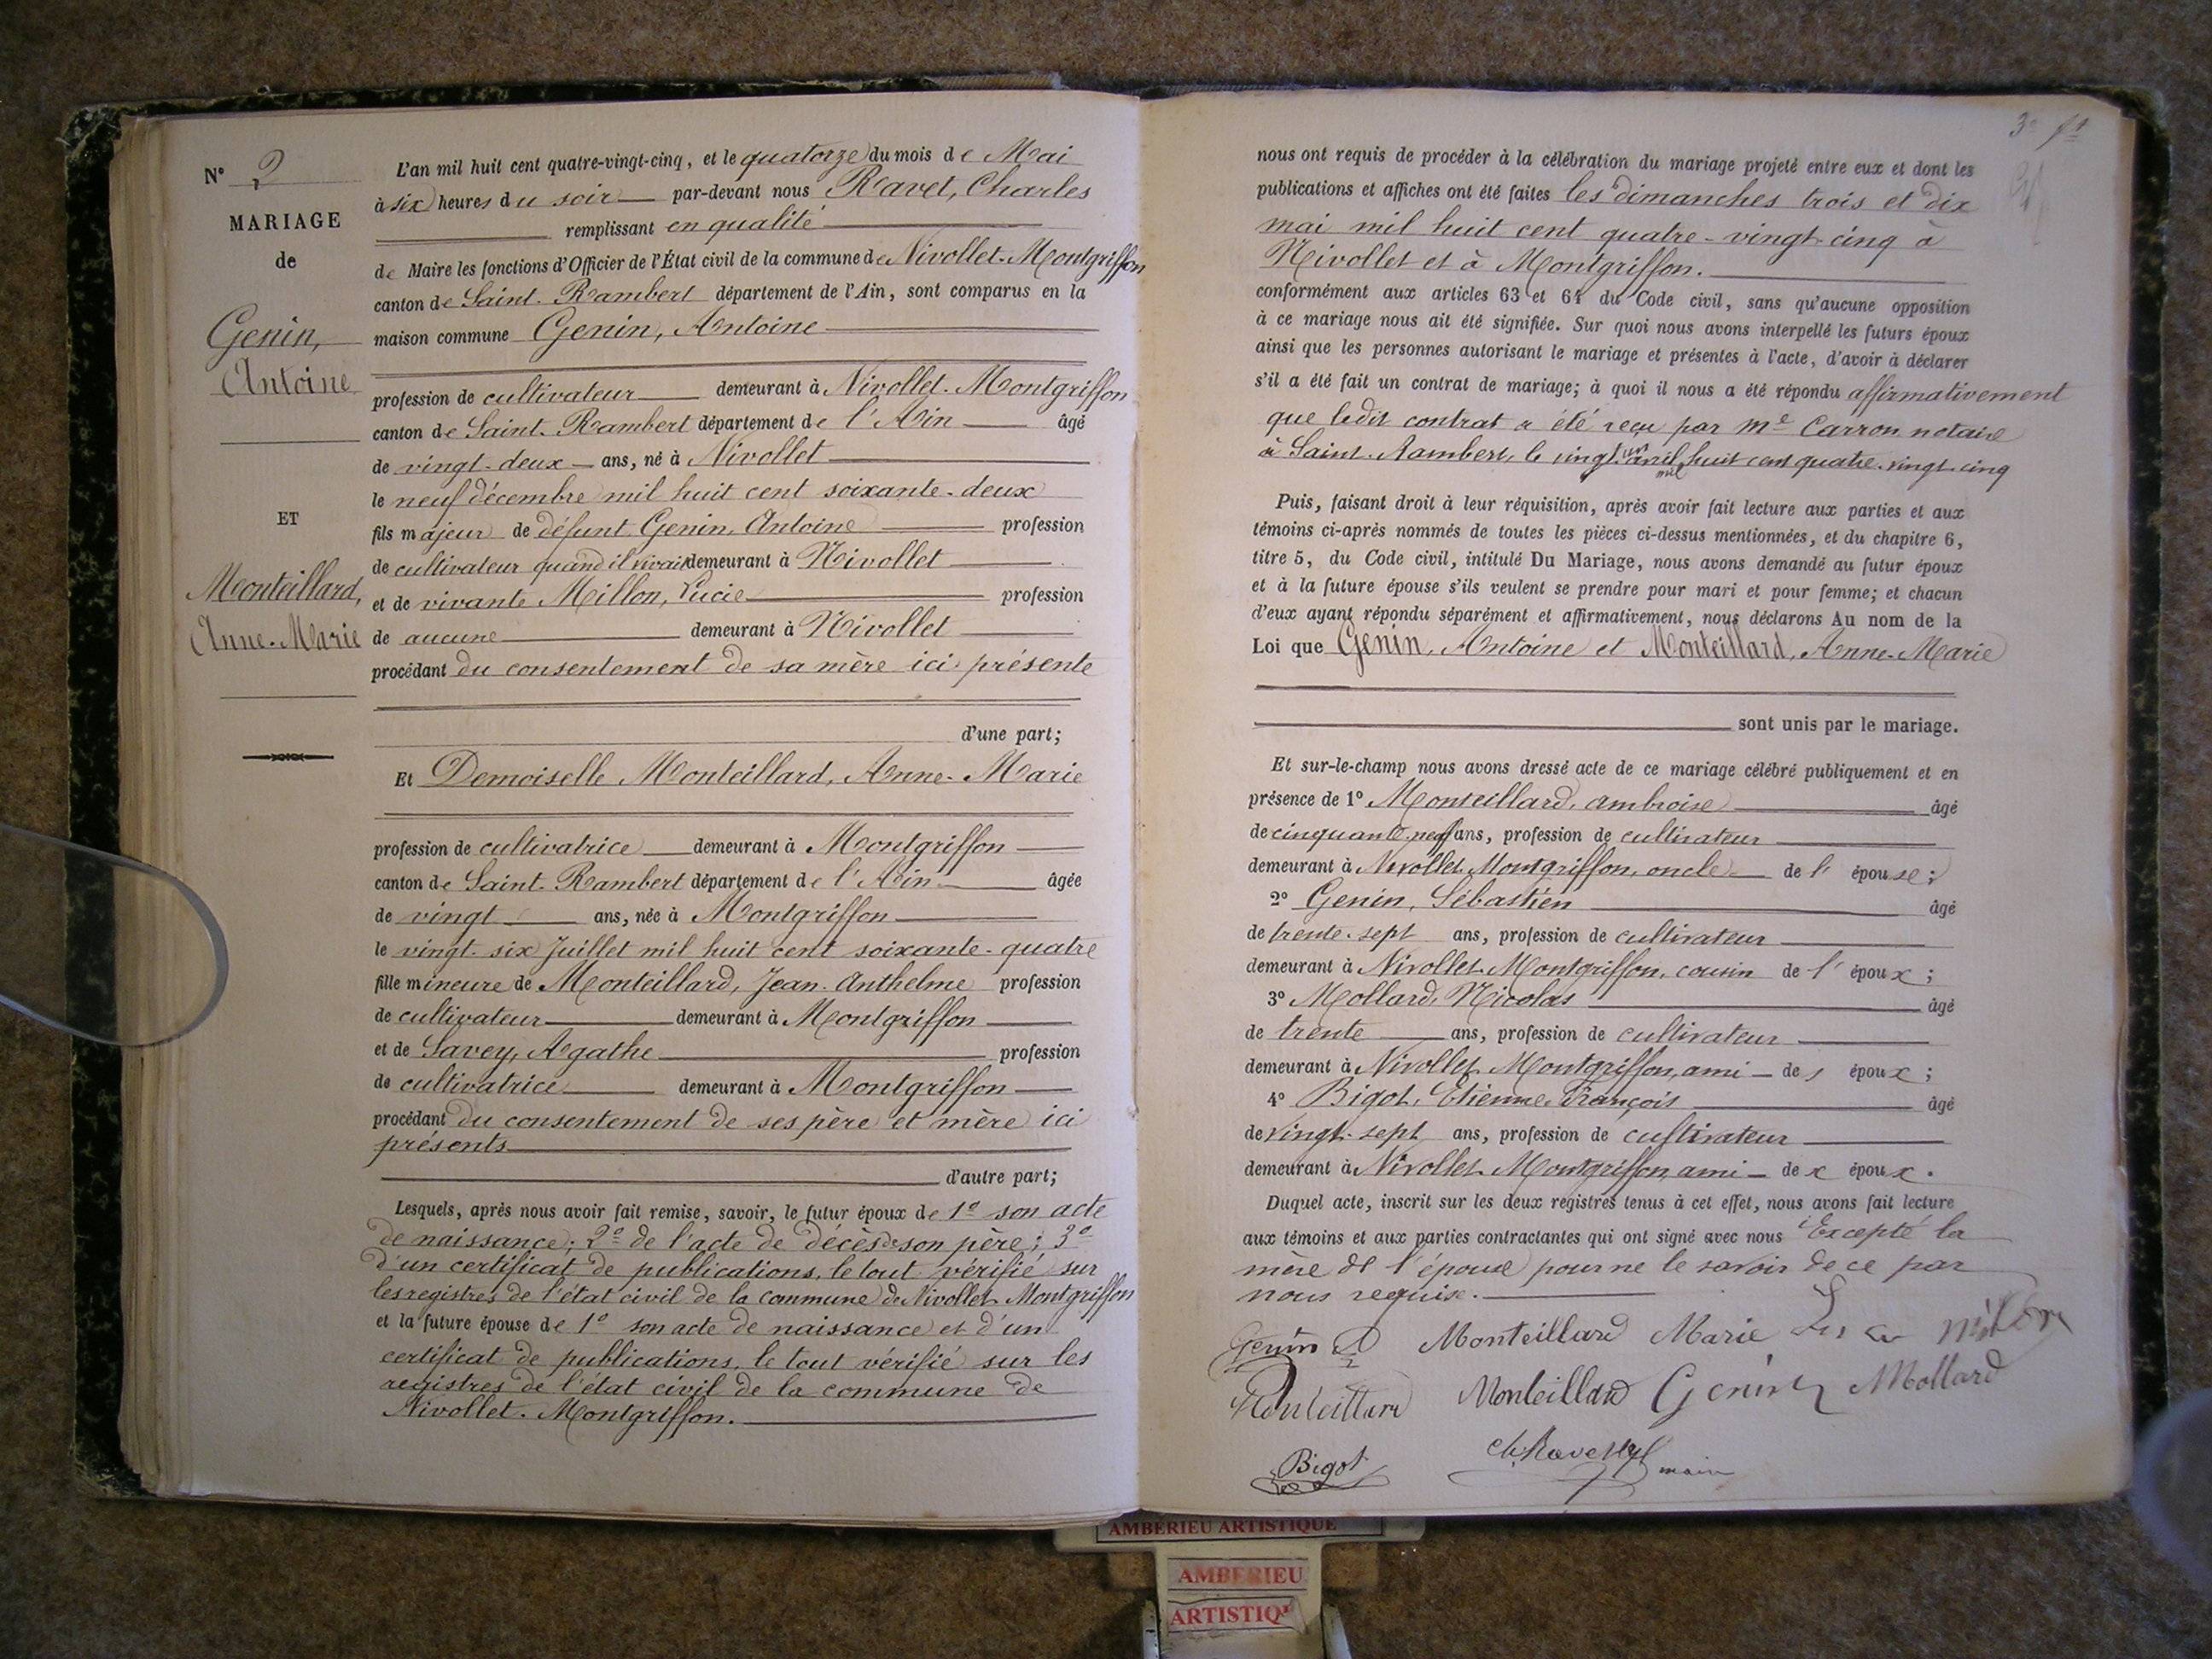 N° 2
MARIAGE
de
Genin,
Antoine
ET
Monteillard,
Anne-Marie
L'an mil huit cent quatre-vingt-cinq, et le quatorze du mois de Mai
à six heures du soir par-devant nous Ravet, Charles
remplissant en qualité
de Maire les fonctions d'Officier de l'État civil de la commune de Nivollet-Montgriffon
canton de Saint-Rambert département de l'Ain, sont comparus en la
maison commune Genin, Antoine
profession de cultivateur demeurant à Nivollet-Montgriffon
canton de Saint-Rambert département de l'Ain âgé
de vingt-deux ans, né à Nivollet
le neuf décembre mil huit cent soixante-deux
fils majeur de défunt Genin, Antoine profession
de cultivateur quand il vivait demeurant à Nivollet
et de vivante Millon, Lucie profession
de aucune demeurant à Nivollet
procédant du consentement de sa mère ici présente
d'une part;
Et Demoiselle Monteillard, Anne-Marie
profession de cultivatrice demeurant à Montgriffon
canton de Saint-Rambert département de l'Ain âgée
de vingt ans, née à Montgriffon
le vingt-six Juillet mil huit cent soixante-quatre
fille mineure de Monteillard, Jean-Anthelme profession
de cultivateur demeurant à Montgriffon
et de Savey, Agathe profession
de cultivatrice demeurant à Montgriffon
procédant du consentement de ses père et mère ici
présents
d'autre part;
Lesquels, après nous avoir fait remise, savoir, le futur époux de 1° son acte
de naissance; 2° de l'acte de décès de son père; 3°
d'un certificat de publications, le tout vérifié sur
les registres de l'état civil de la commune de Nivollet-Montgriffon
et la future épouse de 1° son acte de naissance et d'un
certificat de publications, le tout vérifié sur les
registres de l'état civil de la commune de
Nivollet-Montgriffon.
nous ont requis de procéder à la célébration du mariage projeté entre eux et dont les
publications et affiches ont été faites les dimanches trois et dix
mai mil huit cent quatre-vingt-cinq à
Nivollet et à Montgriffon.
conformément aux articles 63 et 64 du Code civil, sans qu'aucune opposition
à ce mariage nous ait été signifiée. Sur quoi nous avons interpellé les futurs époux
ainsi que les personnes autorisant le mariage et présentes à l'acte, d'avoir à déclarer
s'il a été fait un contrat de mariage; à quoi il nous a été répondu affirmativement
que ledit contrat a été reçu par Me Carron notaire
à Saint-Rambert, le vingt-un avril mil huit cent quatre-vingt-cinq
Puis, faisant droit à leur réquisition, après avoir fait lecture aux parties et aux
témoins ci-après nommés de toutes les pièces ci-dessus mentionnées, et du chapitre 6,
titre 5, du Code civil, intitulé Du Mariage, nous avons demandé au futur époux
et à la future épouse s'ils veulent se prendre pour mari et pour femme; et chacun
d'eux ayant répondu séparément et affirmativement, nous déclarons Au nom de la
Loi que Genin, Antoine et Monteillard, Anne-Marie
sont unis par le mariage.
Et sur-le-champ nous avons dressé acte de ce mariage célébré publiquement et en
présence de 1° Monteillard, ambroise âgé
de cinquante-neuf ans, profession de cultivateur
demeurant à Nivollet-Montgriffon, oncle de l'épouse;
2° Genin, Sébastien âgé
de trente-sept ans, profession de cultivateur
demeurant à Nivollet-Montgriffon, cousin de l'époux;
3° Mollard, Nicolas âgé
de trente ans, profession de cultivateur
demeurant à Nivollet-Montgriffon, ami des époux;
4° Bigot, Etienne-François âgé
de vingt-sept ans, profession de cultivateur
demeurant à Nivollet-Montgriffon, ami de x époux.
Duquel acte, inscrit sur les deux registres tenus à cet effet, nous avons fait lecture
aux témoins et aux parties contractantes qui ont signé avec nous Excepté la
mère de l'épouse pour ne le savoir de ce par
nous requise.
Genin A Monteillard Marie
Monteillard Monteillard Genin Mollard
Bigot Ch. Ravet maire
AMBERIEU ARTISTIQUE
AMBERIEU
ARTISTIQ